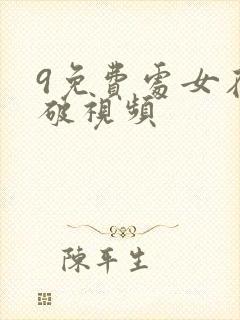 9免費處女在
破視頻
陳平生